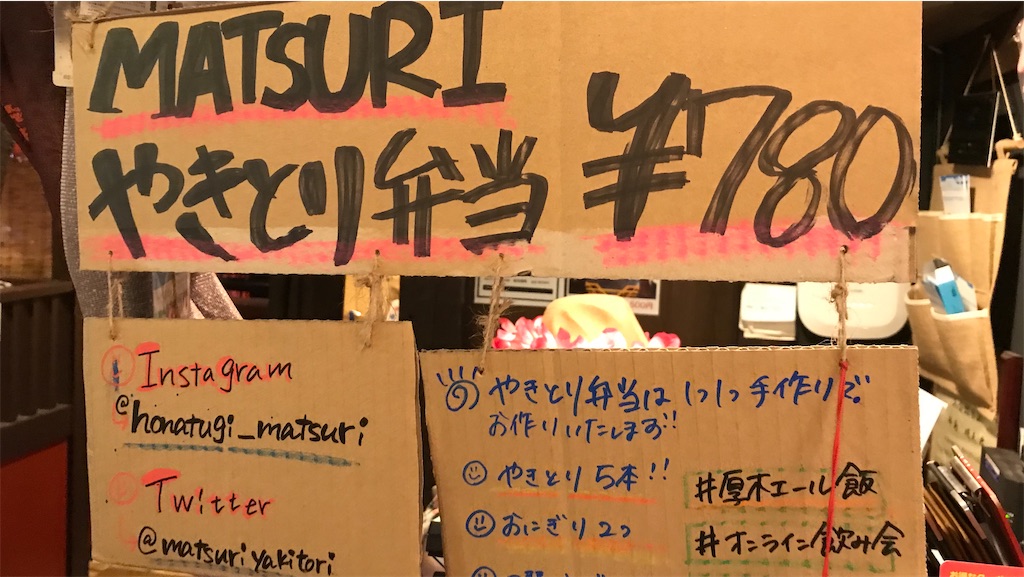 MATSURI
やきとり弁当 ¥780
Instagram
@honatugi_matsuri
Twitter
@matsuriyakitori
やきとり弁当は1つ1つ手作りで
お作りいたします!!
やきとり5本!!
おにぎり2つ
#厚木エール飯
#オンライン飲み会